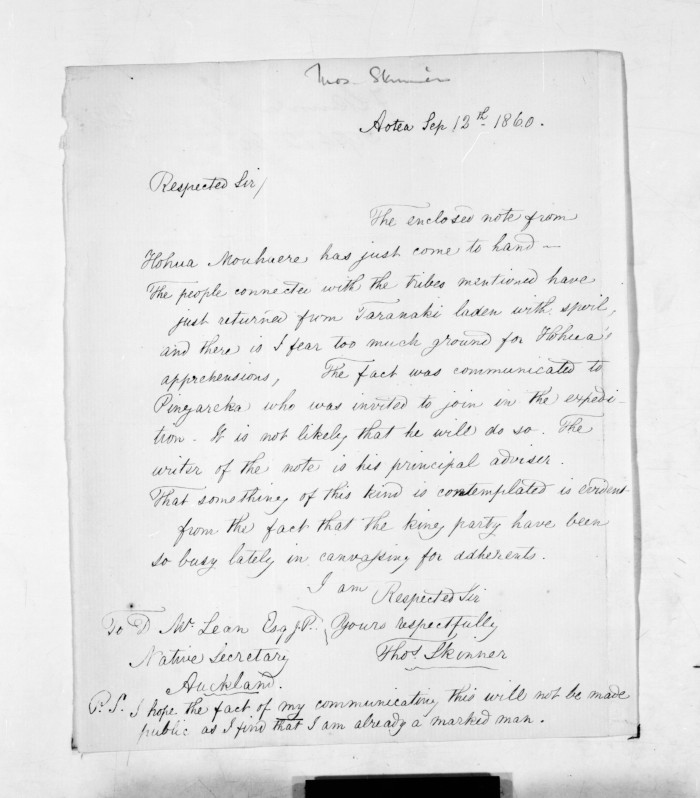 Thos. Skinner
Aotea Sep 12th 1860.
Respected Sir/
The enclosed note from
Hohua Mouhuere has just come to hand—
The people connected with the tribes mentioned have
just returned from Taranaki laden with spoil,
and there is I fear too much ground for Hohua's
apprehensions, The fact was communicated to
Pingareka who was invited to join in the expedi-
tion. It is not likely that he will do so. The
writer of the note is his principal adviser.
That something of this kind is contemplated is evident
from the fact that the king party have been
so busy lately in canvassing for adherents.
I am Respected Sir
Yours respectfully
Thos Skinner
To D. McLean Esq J.P.
Native Secretary
Auckland.
P.S. I hope the fact of my communicating this will not be made
public as I find that I am already a marked man.